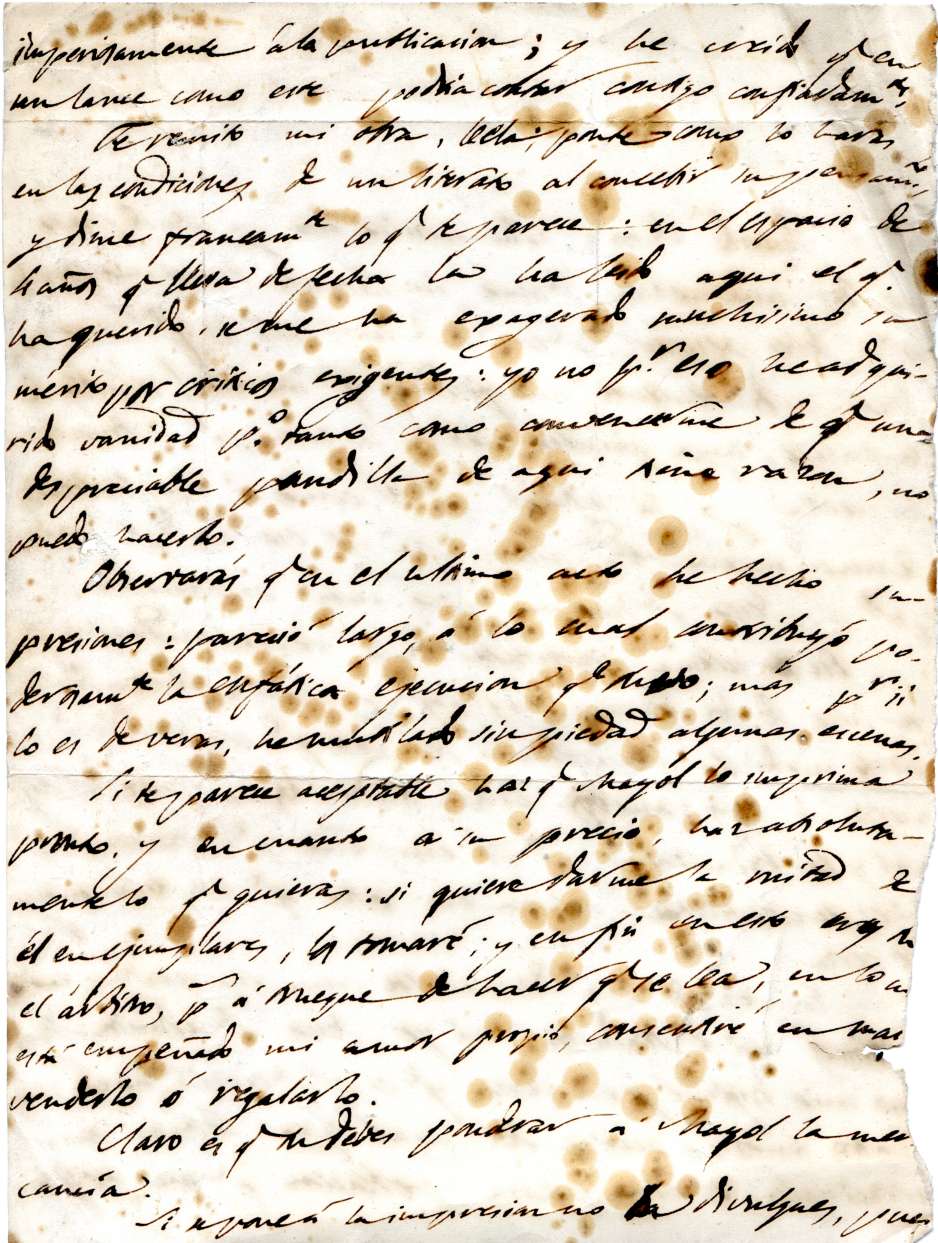 imperiosamente á la publicacion; y he creido q.e en
un lance como este podria contar contigo confiadam.te,
Te remito mi obra, leela; ponte como lo haras
en las condiciones de un literato al concebir su pensam.to,
y dime francam.te lo q.e te parece: en el espacio de
4 años q.e lleva de fecha la ha leido aqui el q.e
ha querido, se me ha exagerado muchisimo su
mérito por criticos exigentes: yo no p.r eso he adqui-
rido vanidad p.o tanto como convencerme de q.e una
despreciable pandilla de aqui tiene razon, no
puedo hacerlo.
Observarás q.e en el ultimo acto he hecho su-
presiones: pareció largo, á lo cual contribuyó po-
derosam.te la enfática ejecucion q.e tuvo; mas p.r si
lo es de veras, he mutilado sin piedad algunas escenas.
Si te parece aceptable haz q.e Mayol lo imprima
pronto, y en cuanto á su precio, haz absoluta-
mente lo q.e quieras: si quiere darme la mitad de
él en ejemplares, los tomaré; y en fin en esto eres tu
el árbitro, p.s á trueque de hacer q.e se lea, en lo q.e
está empeñado mi amor propio, consentiré en mal
venderlo ó regalarlo.
Claro es q.e tu debes ponderar á Mayol la mer-
cancía.
Si se pone á la impresion no la divulgues, pues